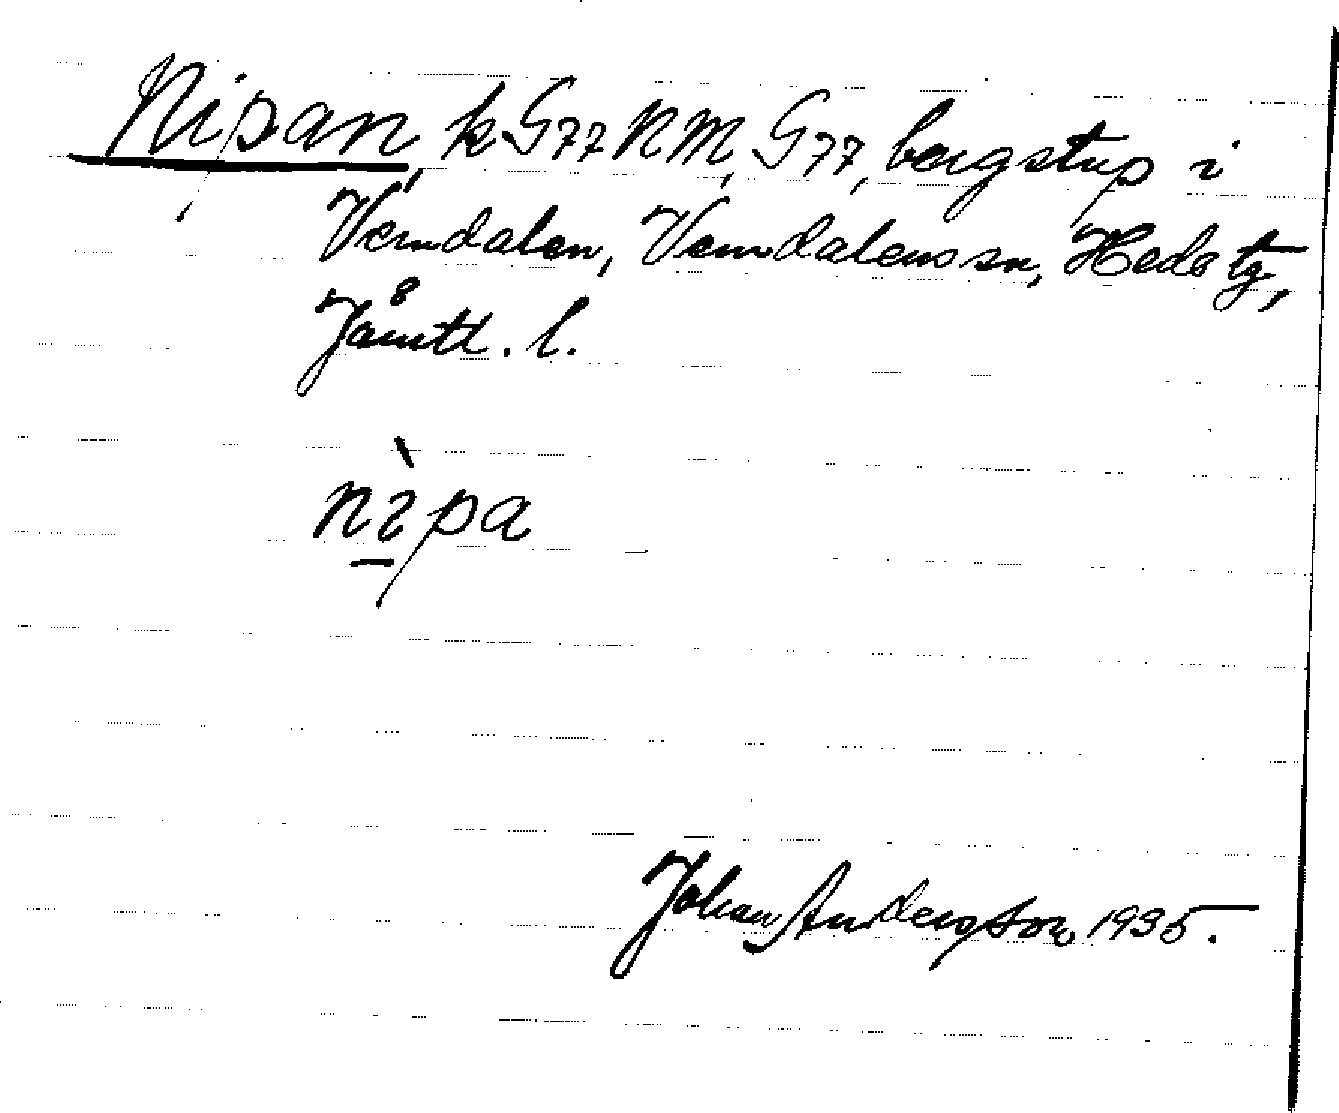 Nipan, k G77 NM, G77, bergstup i
Vemdalen, Vemdalens sn, Hede tg,
Jämtl. l.
nìpa
Johan Andersson 1935.